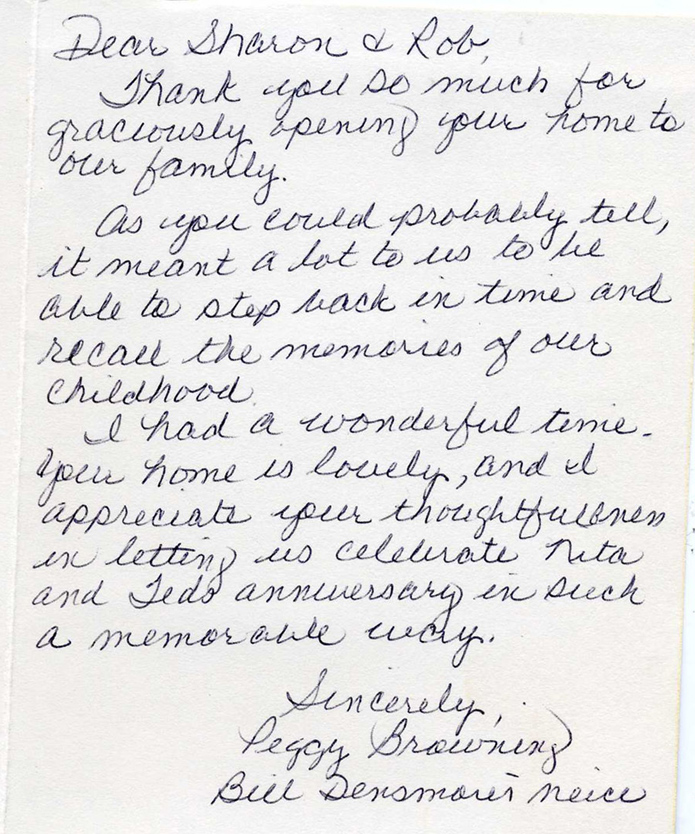 Dear Sharon & Rob,
Thank you so much for
graciously opening your home to
our family.
As you could probably tell,
it meant a lot to us to be
able to step back in time and
recall the memories of our
childhood.
I had a wonderful time.
Your home is lovely, and I
appreciate your thoughtfullness
in letting us celebrate Nita
and Teds anniversary in such
a memorable way.
Sincerely,
Peggy (Browning)
Bill Densmore's neice